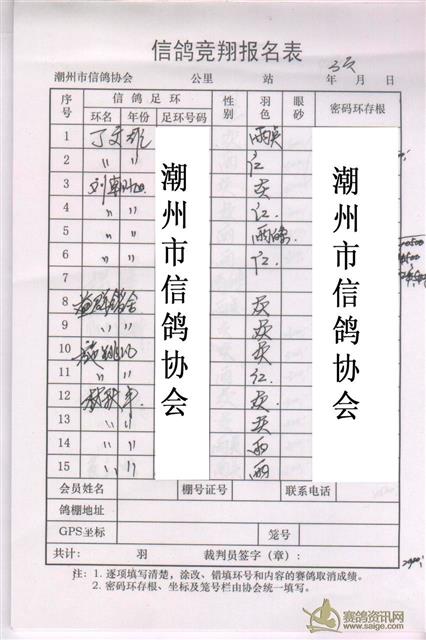 信鸽竞翔报名表
潮州市信鸽协会 公里 站 年 月 日
序号 信鸽足环 性别 羽色 眼砂 密码环存根
环名 年份 足环号码
1 丁文雄 雨
2 〃 〃 红
3 灰
4 〃 〃 红.
5 〃 〃 雨
6 〃 〃 红.
7
8 灰
9 〃 〃 灰
10 灰
11 〃 〃 红
12 灰
13 〃 〃 灰
14 〃 〃 雨
15 〃 〃 雨
潮州市信鸽协会
潮州市信鸽协会
会员姓名 棚号证号 联系电话
鸽棚地址
GPS坐标 笼号
共计: 羽 裁判员签字(章):
注: 1. 逐项填写清楚，涂改、错填环号和内容的赛鸽取消成绩。
2. 密码环存根、坐标及笼号栏由协会统一填写。
赛鸽资讯网
www.saige.com